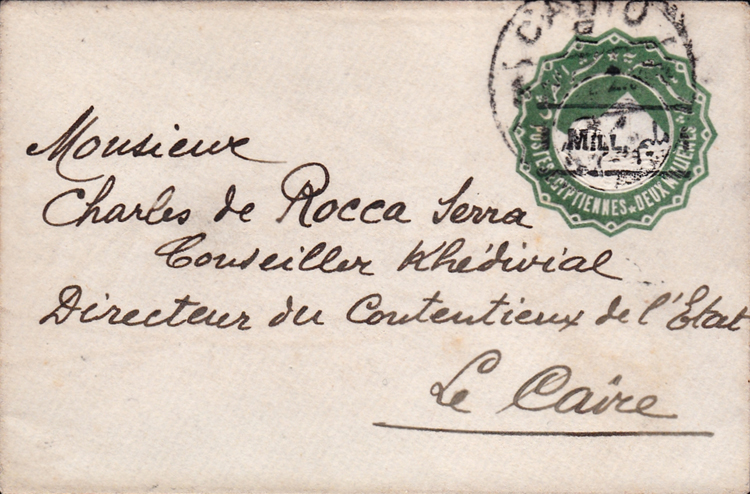 CAIRO
MILL.
POSTES EGYPTIENNES * DEUX MILLIEMES
Monsieur
Charles de Rocca Serra
Conseiller Khédivial
Directeur du Contentieux de l'Etat
Le Caire